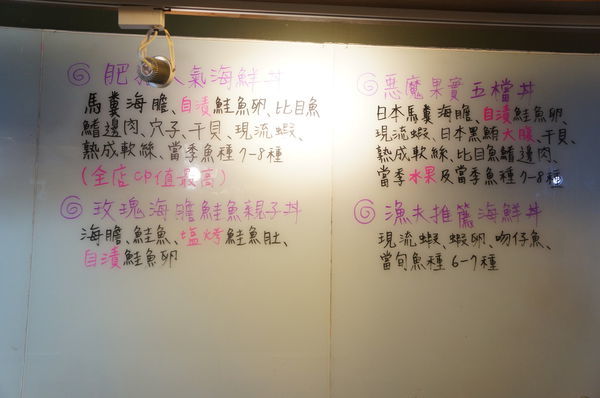 肥 人氣海鮮丼
馬糞海膽、自漬鮭魚卵、比目魚
鰭邊肉、穴子、干貝、現流蝦、
熟成軟絲、當季魚種7-8種
(全店CP值最高)
玫瑰海膽鮭魚親子丼
海膽、鮭魚、塩烤鮭魚肚、
自漬鮭魚卵
惡魔果實五檔丼
日本馬糞海膽、自漬鮭魚卵、
現流蝦、日本黑鮪大腹、干貝、
熟成軟絲、比目魚鰭邊肉、
當季水果及當季魚種7-8種
漁夫推薦海鮮丼
現流蝦、蝦卵、吻仔魚、
當旬魚種6-7種